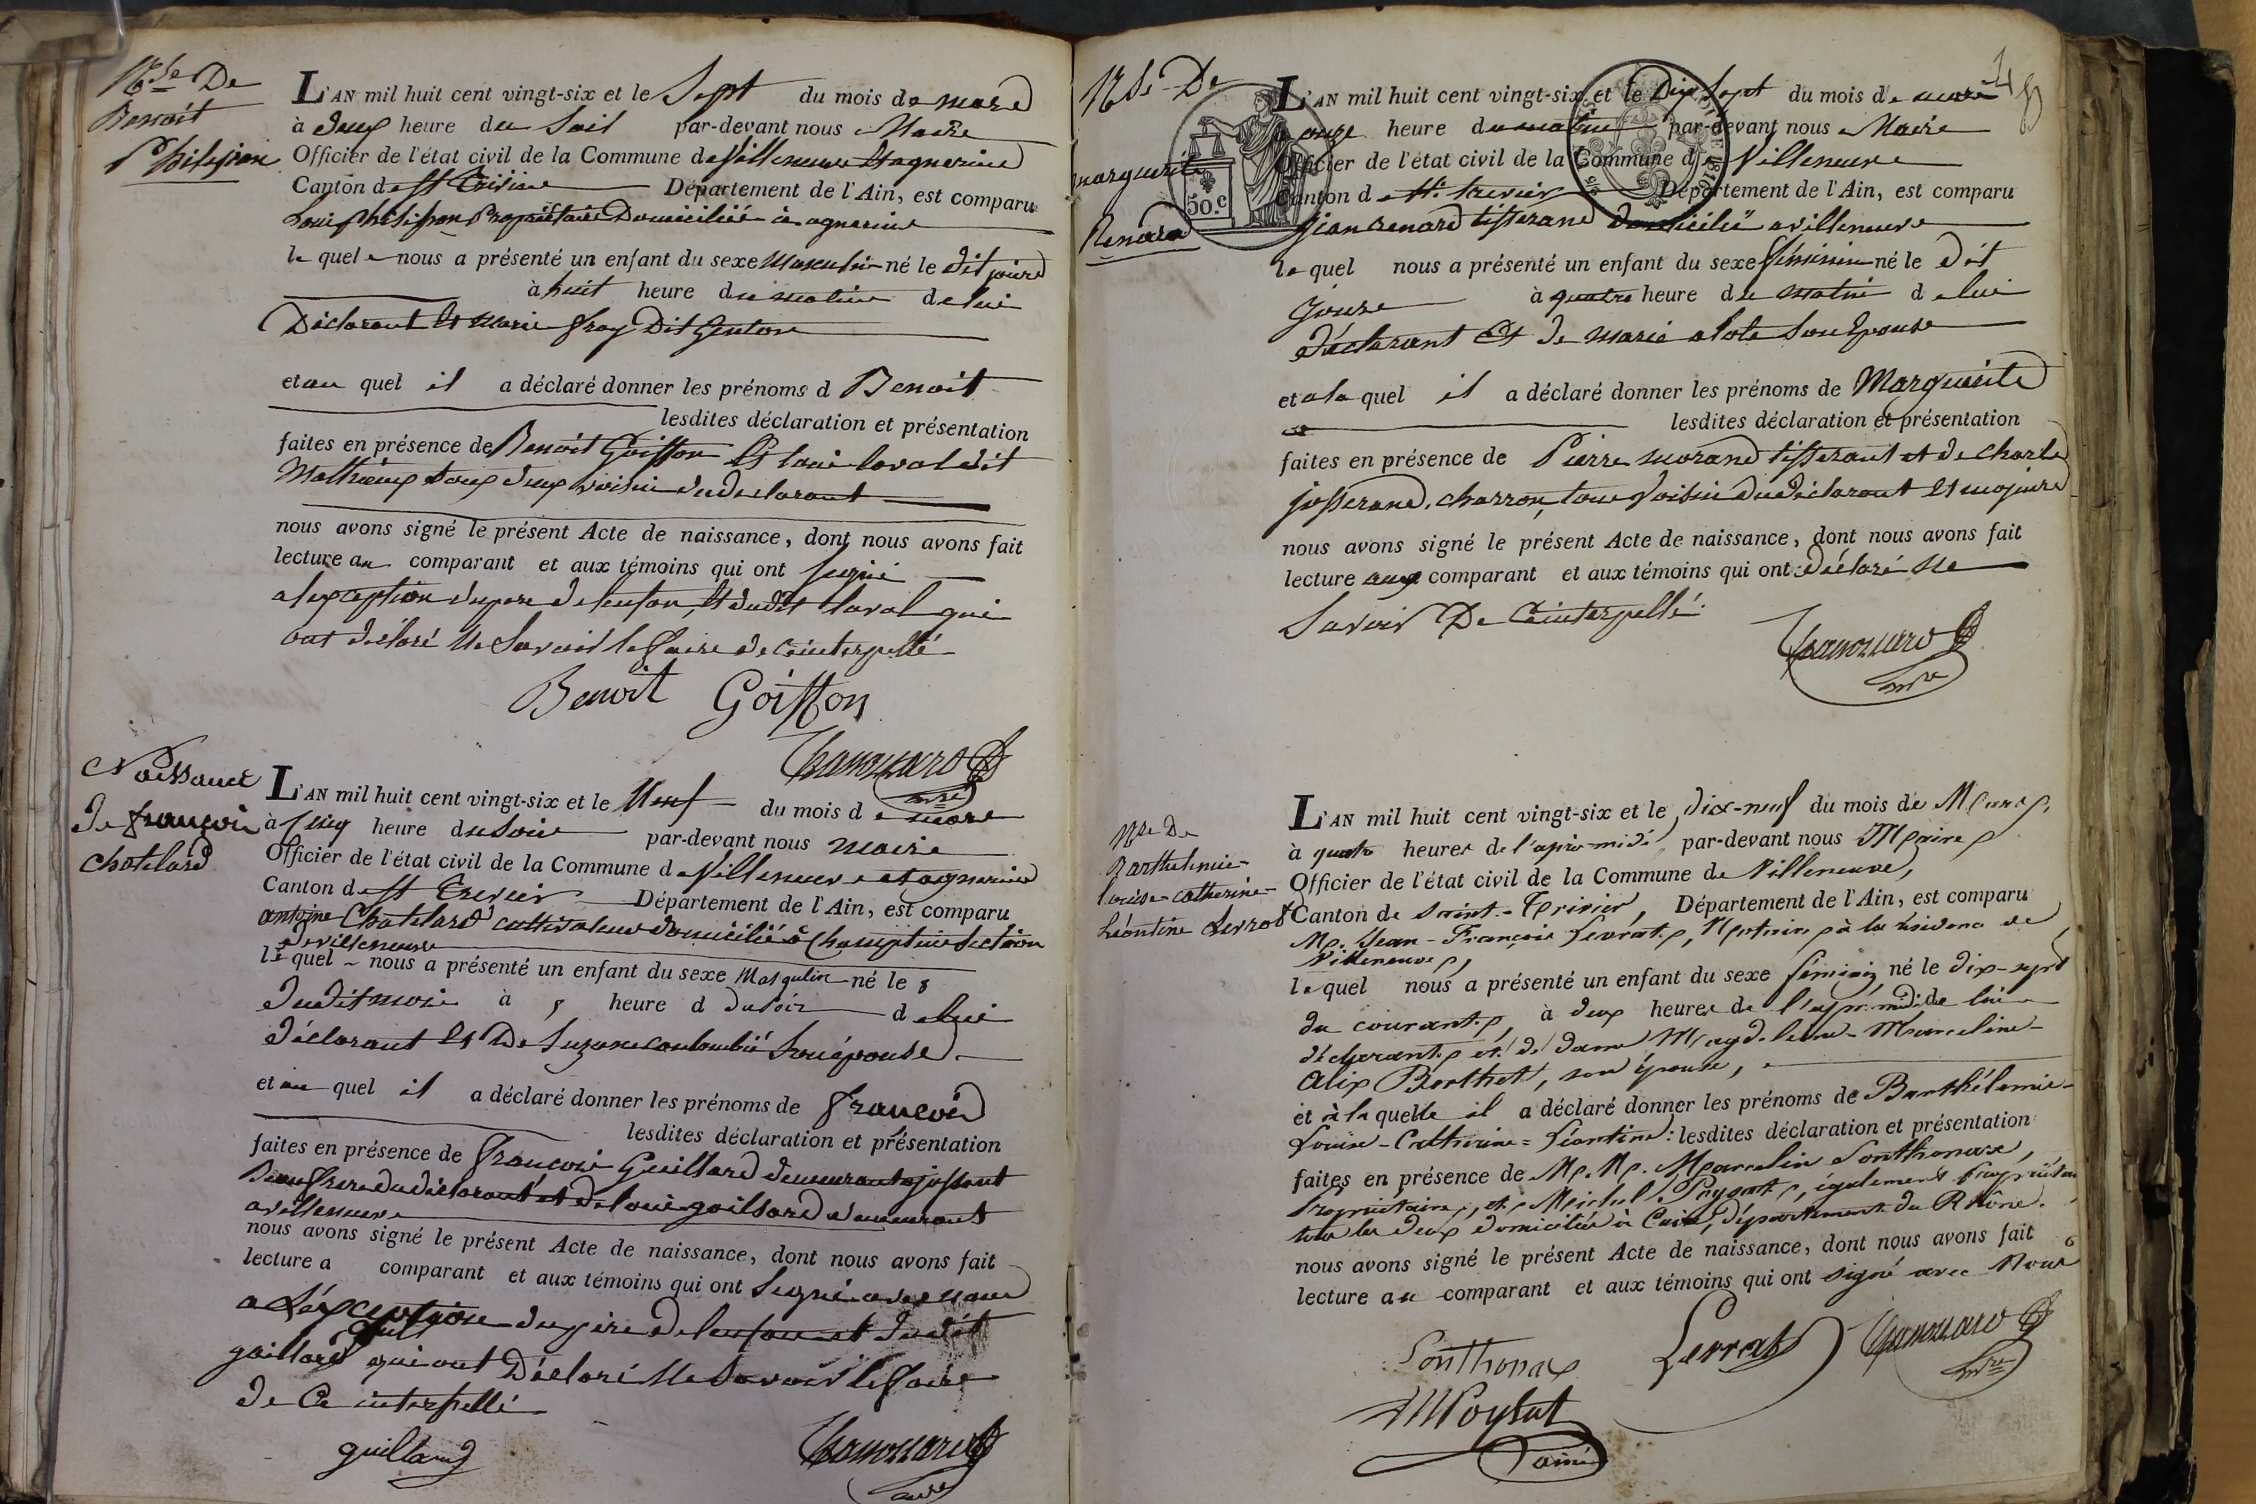 Nse De
Benoit
Philipon
L'AN mil huit cent vingt-six et le Sept du mois de mars
à deux heure du Soir par-devant nous Maire
Officier de l'état civil de la Commune de Villeneuve
Canton de St Trivier Département de l'Ain, est comparu
Louis Philipon Propriétaire Domicilié à agnerins
le quel nous a présenté un enfant du sexe Masculin né le dit jour
à huit heure du matin de lui
Déclarant et Marie fray Dit Genton
et au quel il a déclaré donner les prénoms d Benoit
lesdites déclaration et présentation
faites en présence de Benoit Goiffon et loui laval dit
Mathieux tous deux voisin du declarant
nous avons signé le présent Acte de naissance, dont nous avons fait
lecture au comparant et aux témoins qui ont signé
a lexception du pere de lenfan et dudit laval qui
ont déclaré ne Savoir le faire de ce interpellé
Benoit Goiffon
mre
Naissance
de françois
chatelard
L'AN mil huit cent vingt-six et le Neuf du mois de mars
à cinq heure du soir par-devant nous maire
Officier de l'état civil de la Commune de Villeneuve et agnerins
Canton de St Trivier Département de l'Ain, est comparu
antoine Chatelard cultivateur domicilié à Section
de villeneuve
le quel nous a présenté un enfant du sexe Masqulin né le 8
dudit mois à 5 heure d du soir de lui
déclarant et De Suzane son épouse
et au quel il a déclaré donner les prénoms de françois
lesdites déclaration et présentation
faites en présence de françois Guillard demeurant
Beaufrere du déclarant et de loui gaillard demeurant
a villeneuve
nous avons signé le présent Acte de naissance, dont nous avons fait
lecture a comparant et aux témoins qui ont Signé avec nous
a L'éxception du pere de lenfan et dudit
gaillard qui ont Déclaré Ne Savoir le faire
de Ce interpellé
guillard
Nse De
marguerite
Renard
48
50.c
L'AN mil huit cent vingt-six et le Dix Sept du mois de mars
à onze heure du matin par-devant nous Maire
Officier de l'état civil de la Commune de Villeneuve
Canton de St. trivier Département de l'Ain, est comparu
jean renard tisserand domicilié a villeneuve
le quel nous a présenté un enfant du sexe féminin né le dit
jour à quatre heure du matin de lui
déclarant et de marie son Epouse
et a la quel il a déclaré donner les prénoms de Marguerite
lesdites déclaration et présentation
faites en présence de Pierre morand tisserant et de charle
josserand, charron, tous voisin du déclarant et majeure
nous avons signé le présent Acte de naissance, dont nous avons fait
lecture aux comparant et aux témoins qui ont déclaré Ne
Savoir De Ce interpellé.
mre
Nse De
Barthelemie-
louise-catherine-
Léontine Serrat
L'AN mil huit cent vingt-six et le dix-neuf du mois de Mars,
à quatre heures de l'après-midi, par-devant nous Maire
Officier de l'état civil de la Commune de Villeneuve,
Canton de Saint-Trivier, Département de l'Ain, est comparu
Me. Jean-François Serrat, Notaire à la résidence de
Villeneuve,
le quel nous a présenté un enfant du sexe féminin, né le dix-sept
du courant, à deux heures de l'après-midi, de lui
déclarant et de dame Magdeleine-Marceline-
Alix Berthet, son épouse,
et à la quelle il a déclaré donner les prénoms de Barthélemie-
Louise-Catherine=Léontine: lesdites déclaration et présentation
faites en présence de Mr. Mr. Marcelin Sonthonax,
Propriétaire, et Michel Poysat, également Propriétaire
tous les deux domiciliés à département du Rhône.
nous avons signé le présent Acte de naissance, dont nous avons fait
lecture au comparant et aux témoins qui ont signé avec Nous
Sonthonax
Serrat
mre
M Poysat
ainé